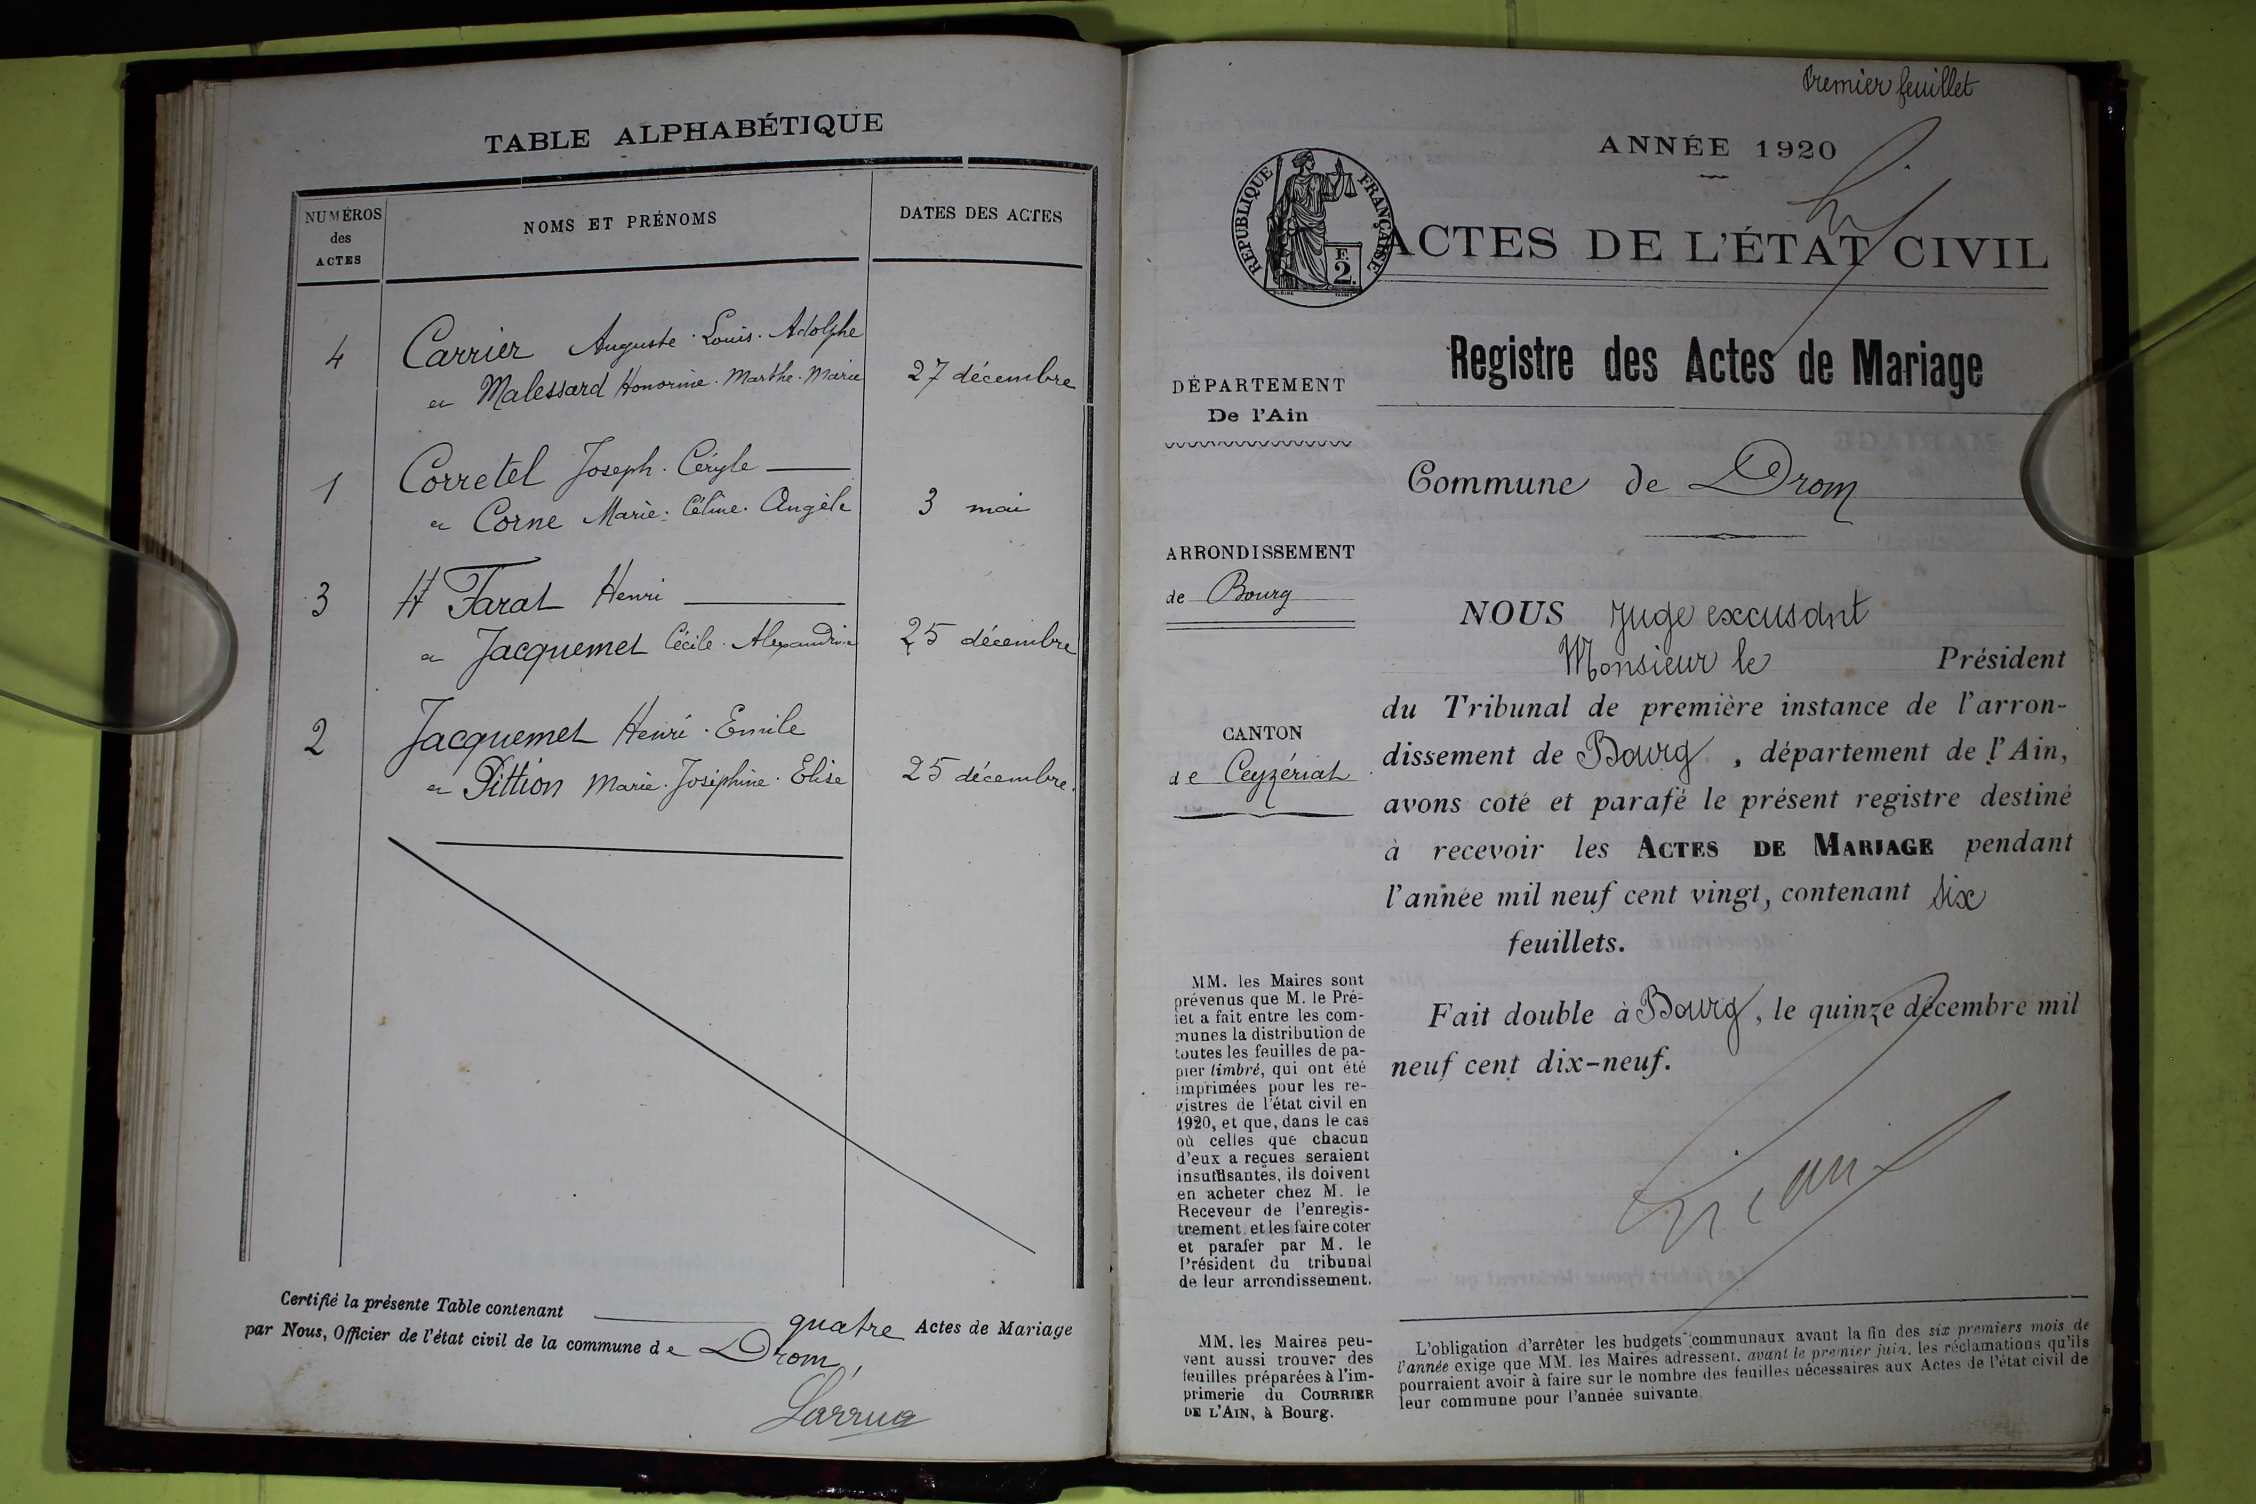 TABLE ALPHABÉTIQUE
NUMÉROS
des
ACTES
NOMS ET PRÉNOMS
DATES DES ACTES
4 Carrier Auguste. Louis. Adolphe
et Malessard Honorine. Marthe. Marie 27 décembre
Corretel Joseph. Céryle
1 et Corne Marie. Céline. Angèle 3 mai
3 Farat Henri
et Jacquemet Cécile. Alexandrine 25 décembre
2 Jacquemet Henri. Emile
et Pittion Marie. Joséphine. Elise 25 décembre.
Certifié la présente Table contenant quatre Actes de Mariage
par Nous, Officier de l'état civil de la commune de Drom,
Premier feuillet
ANNÉE 1920
RÉPUBLIQUE FRANÇAISE
F.
2.
ACTES DE L'ÉTAT CIVIL
Registre des Actes de Mariage
DÉPARTEMENT
De l'Ain
Commune de Drom
ARRONDISSEMENT
de Bourg
CANTON
de Ceyzériat
NOUS Juge excusant
Monsieur le Président
du Tribunal de première instance de l'arron-
dissement de Bourg, département de l'Ain,
avons coté et parafé le présent registre destiné
à recevoir les ACTES DE MARIAGE pendant
l'année mil neuf cent vingt, contenant six
feuillets.
Fait double à Bourg, le quinze décembre mil
neuf cent dix-neuf.
MM. les Maires sont
prévenus que M. le Pré-
fet a fait entre les com-
munes la distribution de
toutes les feuilles de pa-
pier timbré, qui ont été
imprimées pour les re-
gistres de l'état civil en
1920, et que, dans le cas
où celles que chacun
d'eux a reçues seraient
insuffisantes, ils doivent
en acheter chez M. le
Receveur de l'enregis-
trement et les faire coter
et parafer par M. le
Président du tribunal
de leur arrondissement.
MM. les Maires peu-
vent aussi trouver des
feuilles préparées à l'im-
primerie du COURRIER
DE L'AIN, à Bourg.
L'obligation d'arrêter les budgets communaux avant la fin des six premiers mois de
l'année exige que MM. les Maires adressent, avant le premier juin, les réclamations qu'ils
pourraient avoir à faire sur le nombre des feuilles nécessaires aux Actes de l'état civil de
leur commune pour l'année suivante.